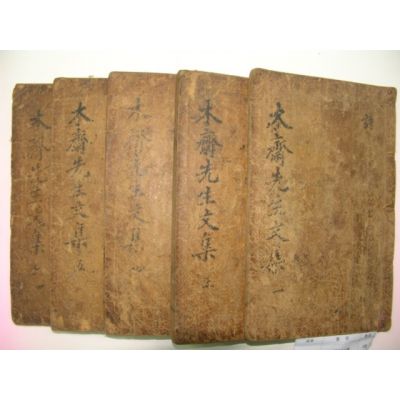 詩
木齋先生文集 一
木齋先生文集
木齋先生文集 四
木齋先生文集 五
木齋先生文集